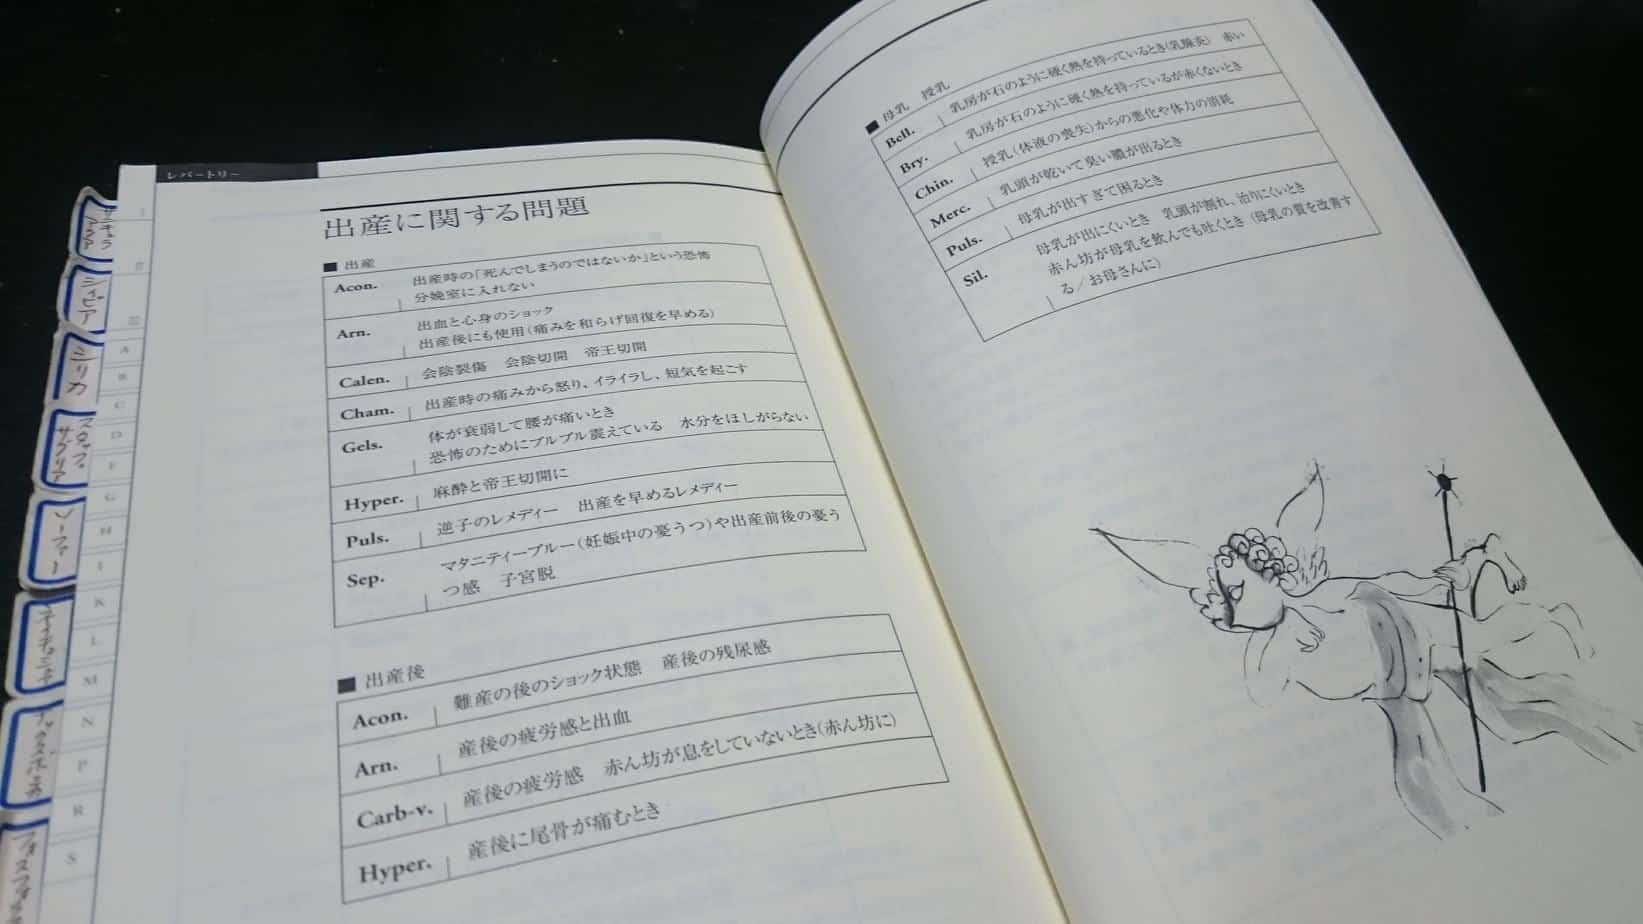 レパートリー
出産に関する問題
■ 出産
Acon. 出産時の「死んでしまうのではないか」という恐怖
分娩室に入れない
Arn. 出血と心身のショック
出産後にも使用(痛みを和らげ回復を早める)
Calen. 会陰裂傷 会陰切開 帝王切開
Cham. 出産時の痛みから怒り、イライラし、短気を起こす
Gels. 体が衰弱して腰が痛いとき
恐怖のためにブルブル震えている 水分をほしがらない
Hyper. 麻酔と帝王切開に
Puls. 逆子のレメディー 出産を早めるレメディー
Sep. マタニティーブルー(妊娠中の憂うつ)や出産前後の憂う
つ感 子宮脱
■ 出産後
Acon. 難産の後のショック状態 産後の残尿感
Arn. 産後の疲労感と出血
Carb-v. 産後の疲労感 赤ん坊が息をしていないとき(赤ん坊に)
Hyper. 産後に尾骨が痛むとき
■ 母乳 授乳
Bell. 乳房が石のように硬く熱を持っているとき(乳腺炎) 赤い
Bry. 乳房が石のように硬く熱を持っているが赤くないとき
Chin. 授乳(体液の喪失)からの悪化や体力の消耗
Merc. 乳頭が乾いて臭い膿が出るとき
Puls. 母乳が出すぎて困るとき
Sil. 母乳が出にくいとき 乳頭が割れ、治りにくいとき
赤ん坊が母乳を飲んでも吐くとき (母乳の質を改善す
る/お母さんに)
シイピア
シリカ
スタッフィ
サグリア
ソーファー
I
II
III
A
B
C
D
F
G
H
I
K
L
M
N
P
R
S